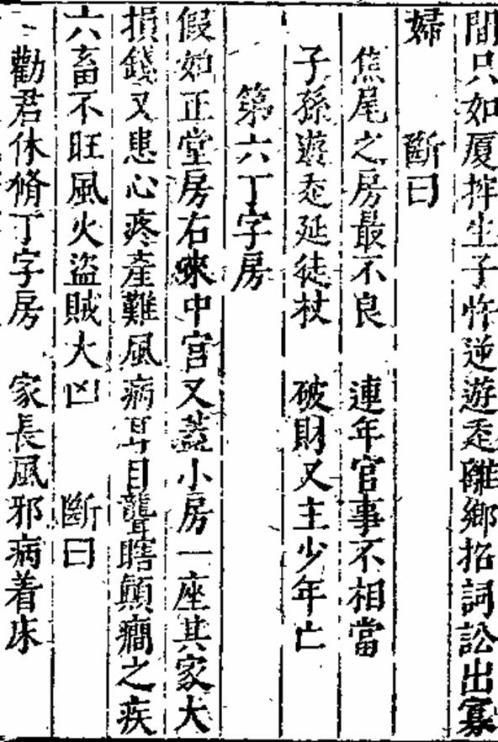 間只如厦拌生子忤逆遊走離鄉招詞訟出寡
婦　　斷曰
焦尾之房最不良　連年官事不相當
子孫遊走延徒杖　破財又主少年亡
第六丁字房
假如正堂房右來中宮又蓋小房一座其家大
損錢又患心疼產難風病耳目聾瞎顛癎之疾
六畜不旺風火盜賊大凶　　斷曰
勸君休脩丁字房　家長風邪病着床